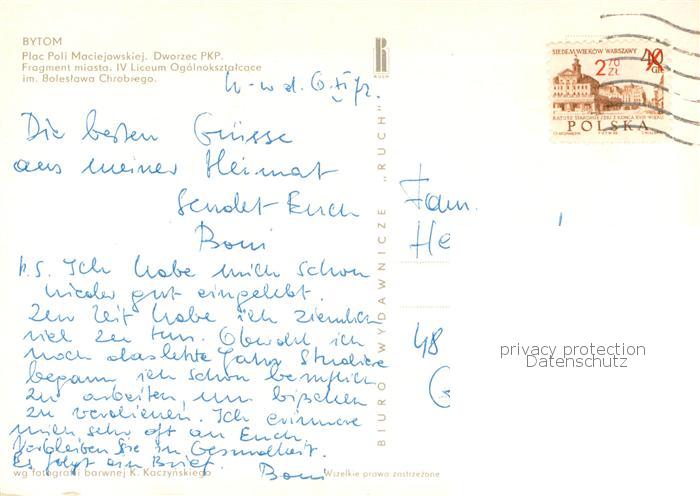 BYTOM
Plac Poli Maciejowskiej. Dworzec PKP.
Fragment miasta. IV Liceum Ogólnokształcące
im. Bolesława Chrobrego.
RUCH
SIEDEM WIEKÓW WARSZAWY
2,70 ZŁ
40 GR
POLSKA
Die besten Grüsse
aus meiner Heimat
sendet Euch
Boni
P.S. Ich habe mich schon
wieder gut eingelebt.
Zur Zeit habe ich ziemlich
viel zu tun. Obwohl ich
noch das letzte Jahr studiere
begann ich schon beruflich
zu arbeiten, um bißchen
zu verdienen. Ich erinnere
mich sehr oft an Euch.
Verbleiben Sie in Gesundheit.
Es folgt ein Brief. Boni
wg fotografii barwnej K. Kaczyńskiego
Wszelkie prawa zastrzeżone
BIURO WYDAWNICZE „RUCH"
Fam.
He
48
G
privacy protection
Datenschutz